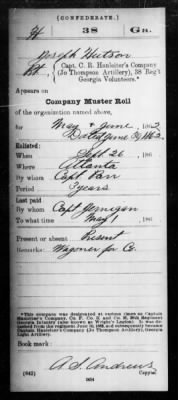 (CONFEDERATE.)
H 38 Ga.
Joseph Hutson
Pvt., Capt. C. R. Hanleiter's Company
(Jo Thompson Artillery), 38 Reg't
Georgia Volunteers.*
Appears on
Company Muster Roll
of the organization named above,
for May & June, 1862
Dated June 30, 1862
Enlisted:
When Sept 26, 186
Where Atlanta
By whom Capt Parr
Period 3 years
Last paid:
By whom Capt Jernigan
To what time May 1, 186
Present or absent Present
Remarks: Wagoner for Co.
*This company was designated at various times as Captain
Hanleiter's Company,
Georgia Infantry (also known as Wright's Legion). It was detached
from the regiment
Captain Hanleiter's Company (Jo Thompson Artillery), Georgia
Light Artillery.
Book mark:
A. S. Andrews
(642) Copyist.